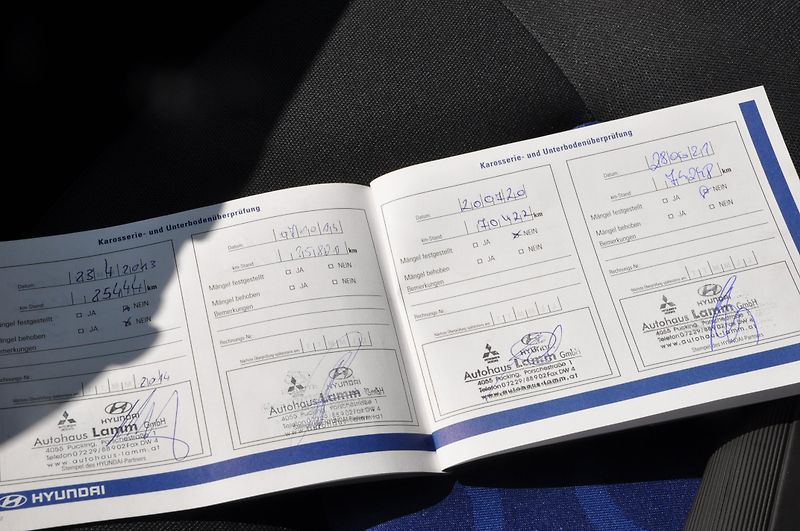 Karosserie- und Unterbodenüberprüfung
Datum: 23 4 2013
km-Stand 25444 km
Mängel festgestellt JA NEIN
Mängel behoben JA NEIN
Bemerkungen
Rechnungs-Nr.
Nächste Überprüfung spätestens am: 2014
HYUNDAI
Autohaus Lamm GmbH
4055 Pucking, Porschestraße 1
Telefon 07229/88902 Fax DW 4
www.autohaus-lamm.at
Stempel des HYUNDAI-Partners
HYUNDAI
Datum:
km-Stand km
Mängel festgestellt JA NEIN
Mängel behoben JA NEIN
Bemerkungen
Rechnungs-Nr.
Nächste Überprüfung spätestens am:
HYUNDAI
Autohaus Lamm GmbH
4055 Pucking, Porschestraße 1
Telefon 07229/88902 Fax DW 4
www.autohaus-lamm.at
Karosserie- und Unterbodenüberprüfung
Datum: 20 9 7 20
km-Stand 70422 km
Mängel festgestellt JA NEIN
Mängel behoben JA NEIN
Bemerkungen
Rechnungs-Nr.
Nächste Überprüfung spätestens am:
HYUNDAI
Autohaus Lamm GmbH
4055 Pucking, Porschestraße 1
Telefon 07229/88902 Fax DW 4
www.autohaus-lamm.at
Datum: 28 06 21
km-Stand 74248 km
Mängel festgestellt JA NEIN
Mängel behoben JA NEIN
Bemerkungen
Rechnungs-Nr.
Nächste Überprüfung spätestens am:
HYUNDAI
Autohaus Lamm GmbH
4055 Pucking, Porschestraße 1
Telefon 07229/88902 Fax DW 4
www.autohaus-lamm.at
Stempel des HYUNDAI-Partners